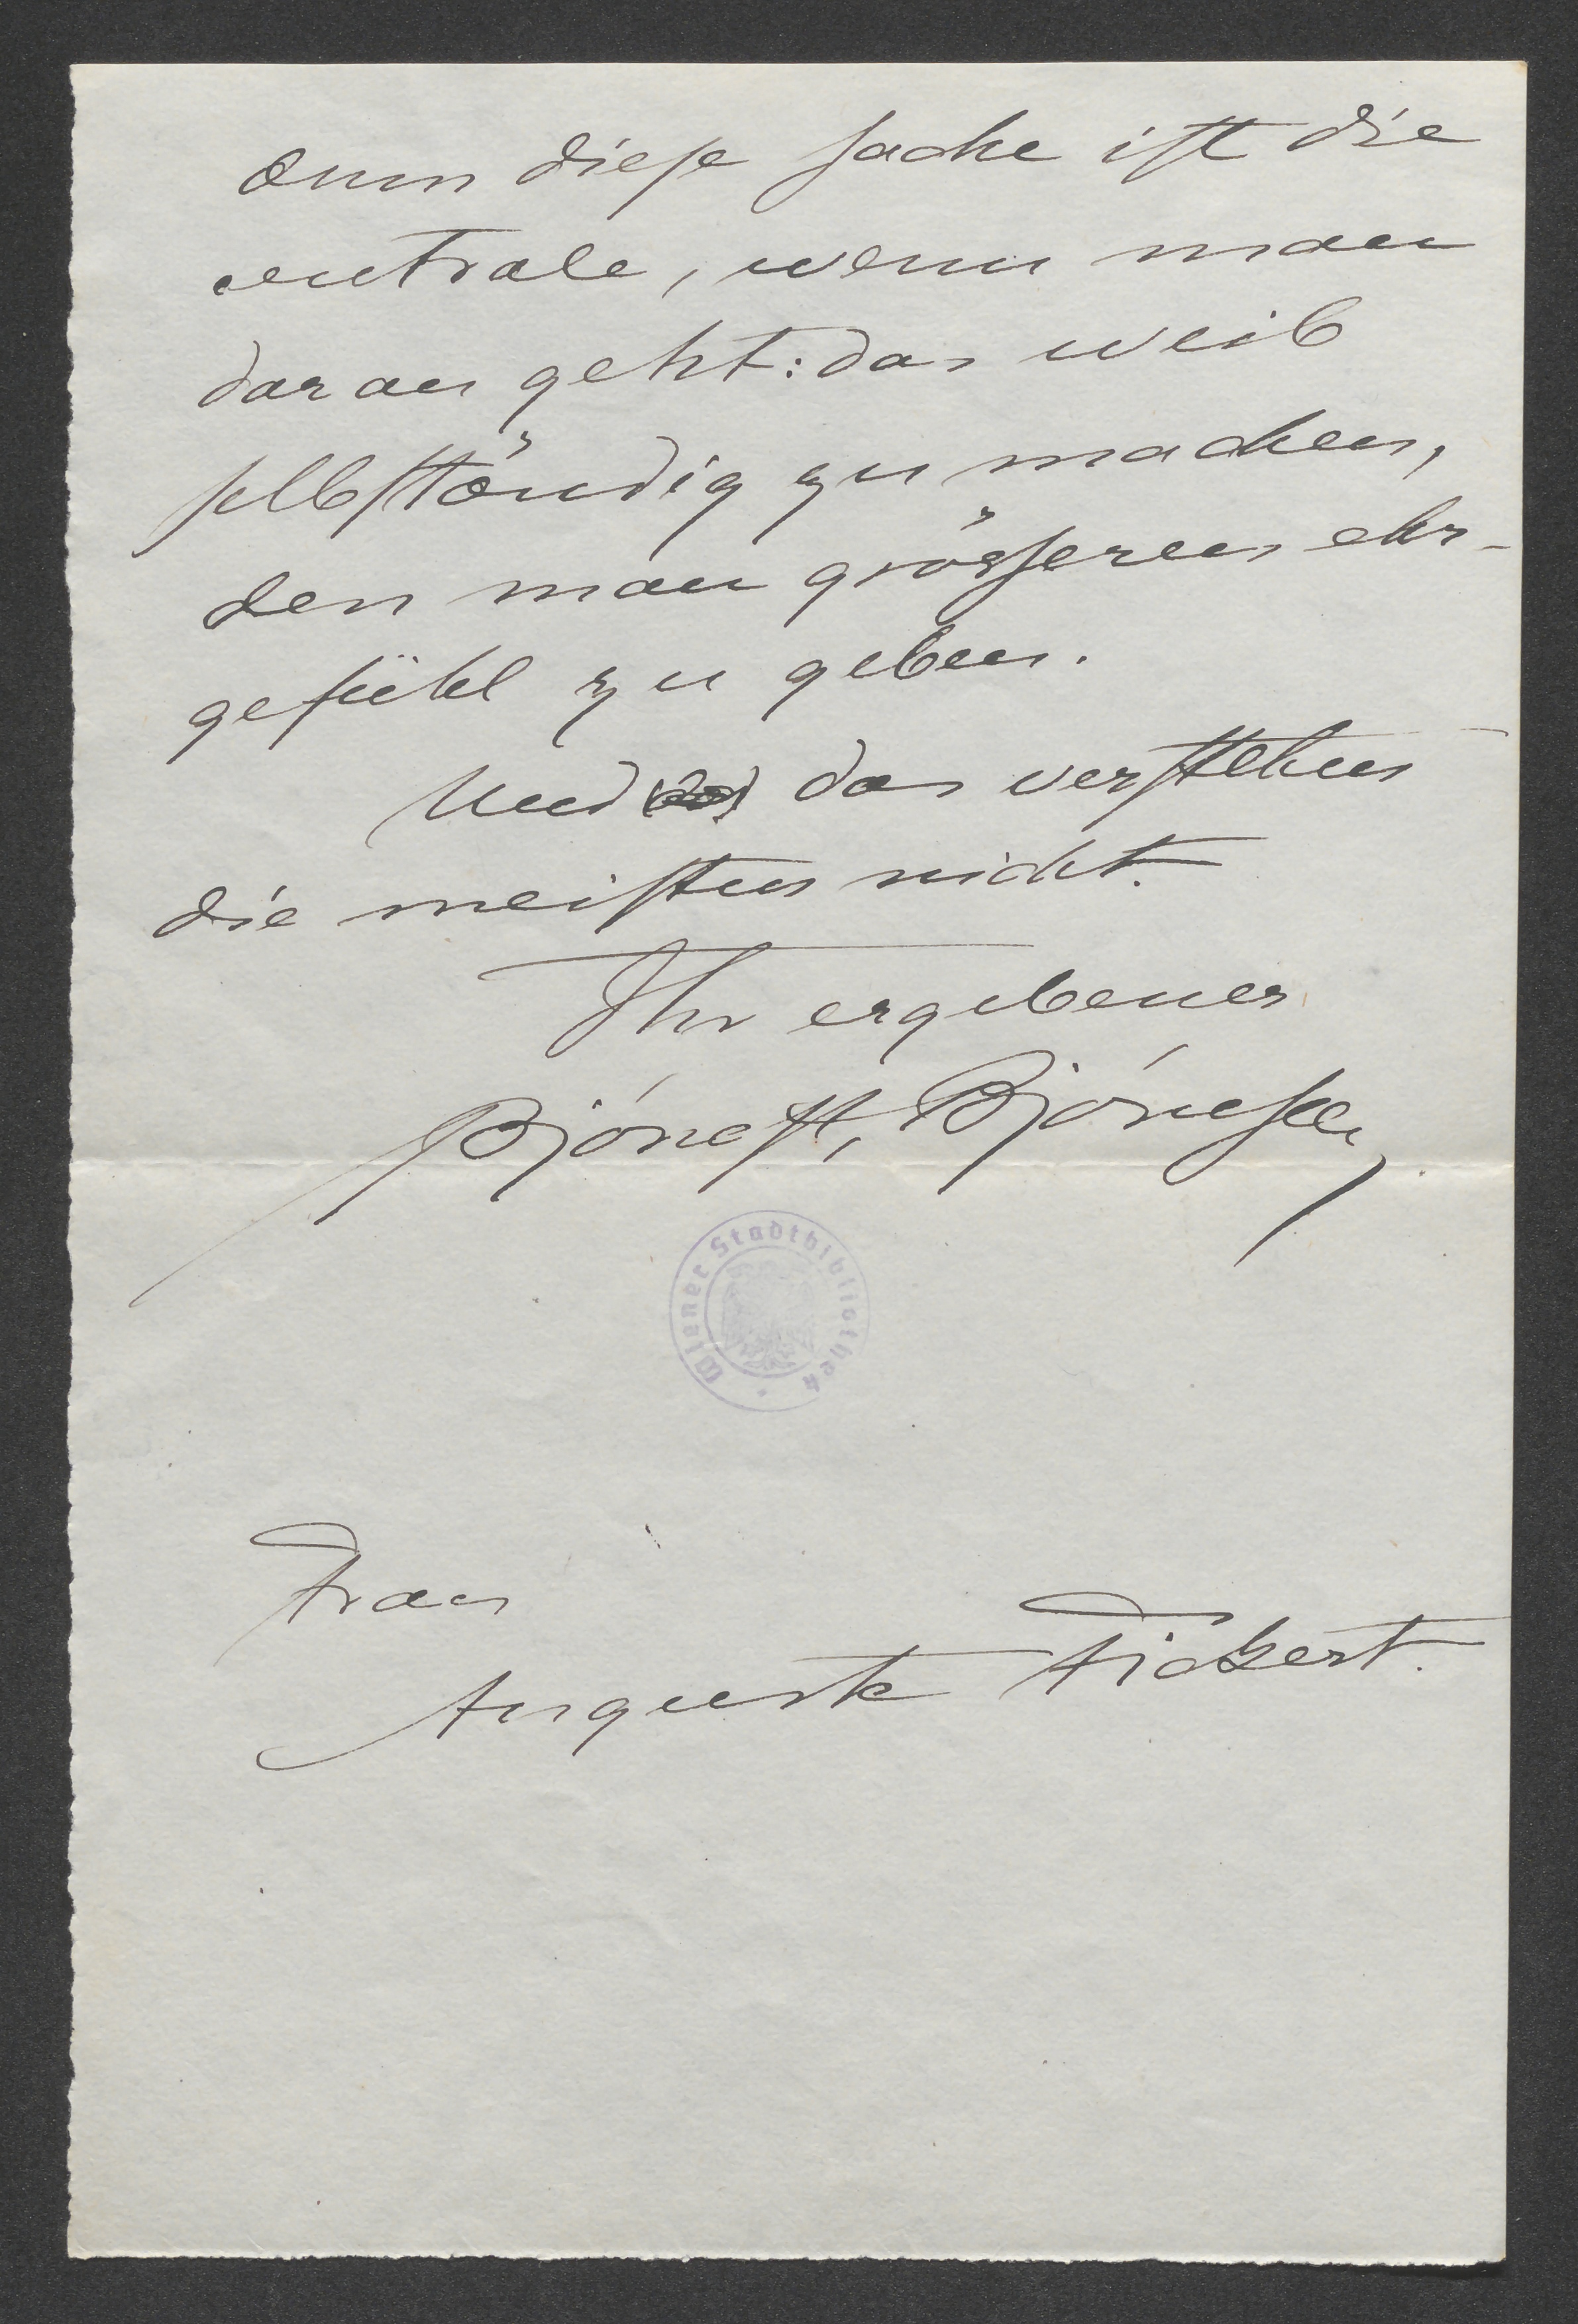 denn diese sache ist die
centrale, wenn man
daran geht: das weib
selbständig zu machen,
den man grösseren ehr-
gefühl zu geben.
Und das verstehen
die meisten nicht.
Ihr ergebener
Björnst. Björnson
Wiener Stadtbibliothek
Frau
Auguste Fickert.